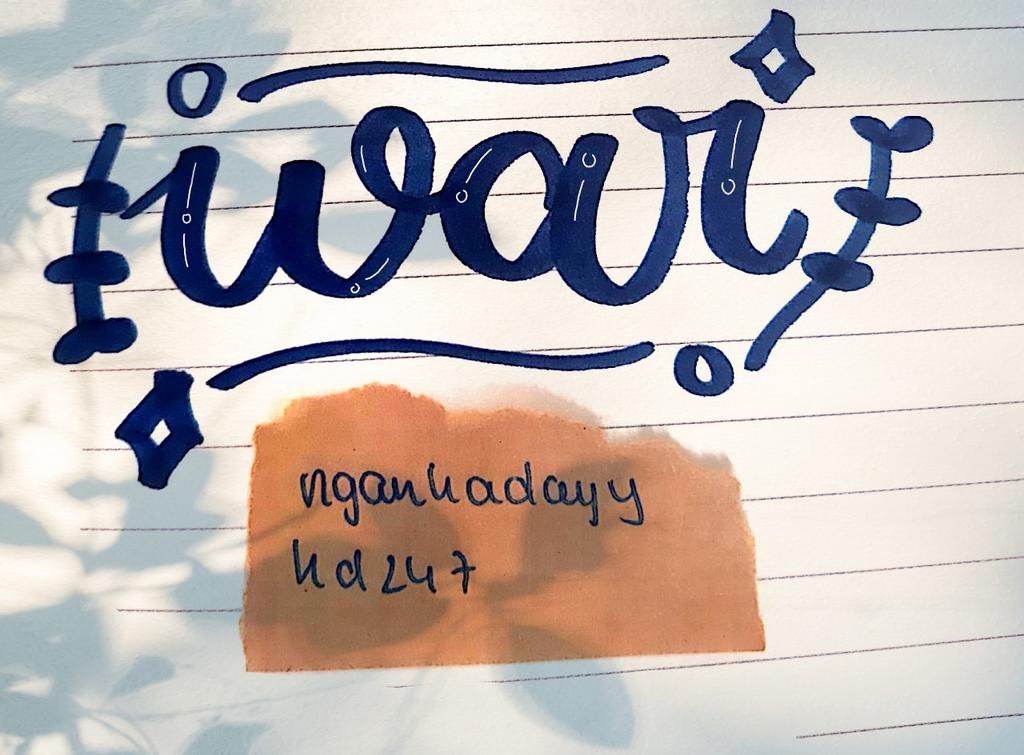 iwari
ngankadayy
kd247